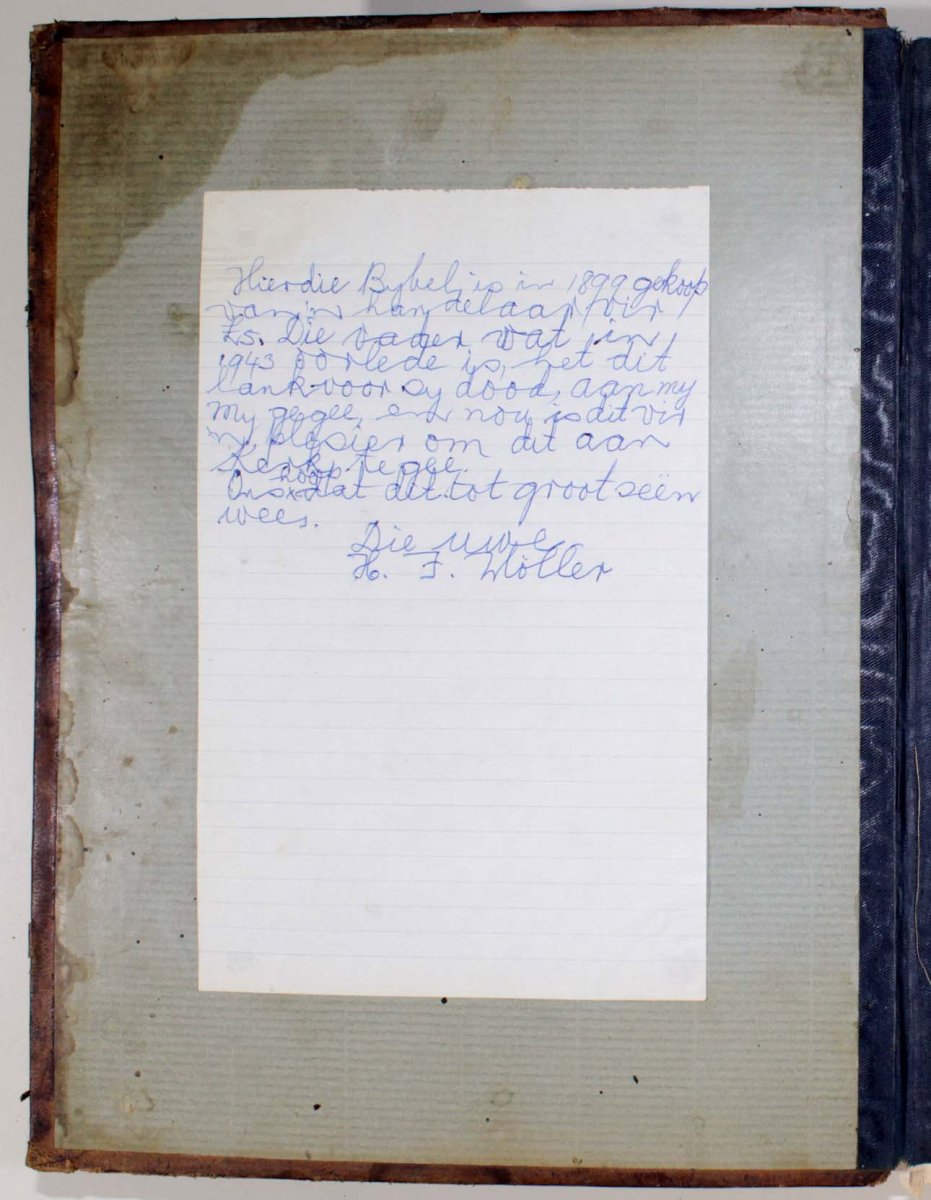 Hierdie Bybel is in 1899 gekoop
van 'n handelaar vir
£5. Die vader wat in
1943 oorlede is, het dit
lank voor sy dood, aan my
my gegee, en nou is dit vir
'n plesier om dit aan
Kerk te gee.
Ons hoop dat dit tot groot seën
wees.
Die uwe
H. F. Möller